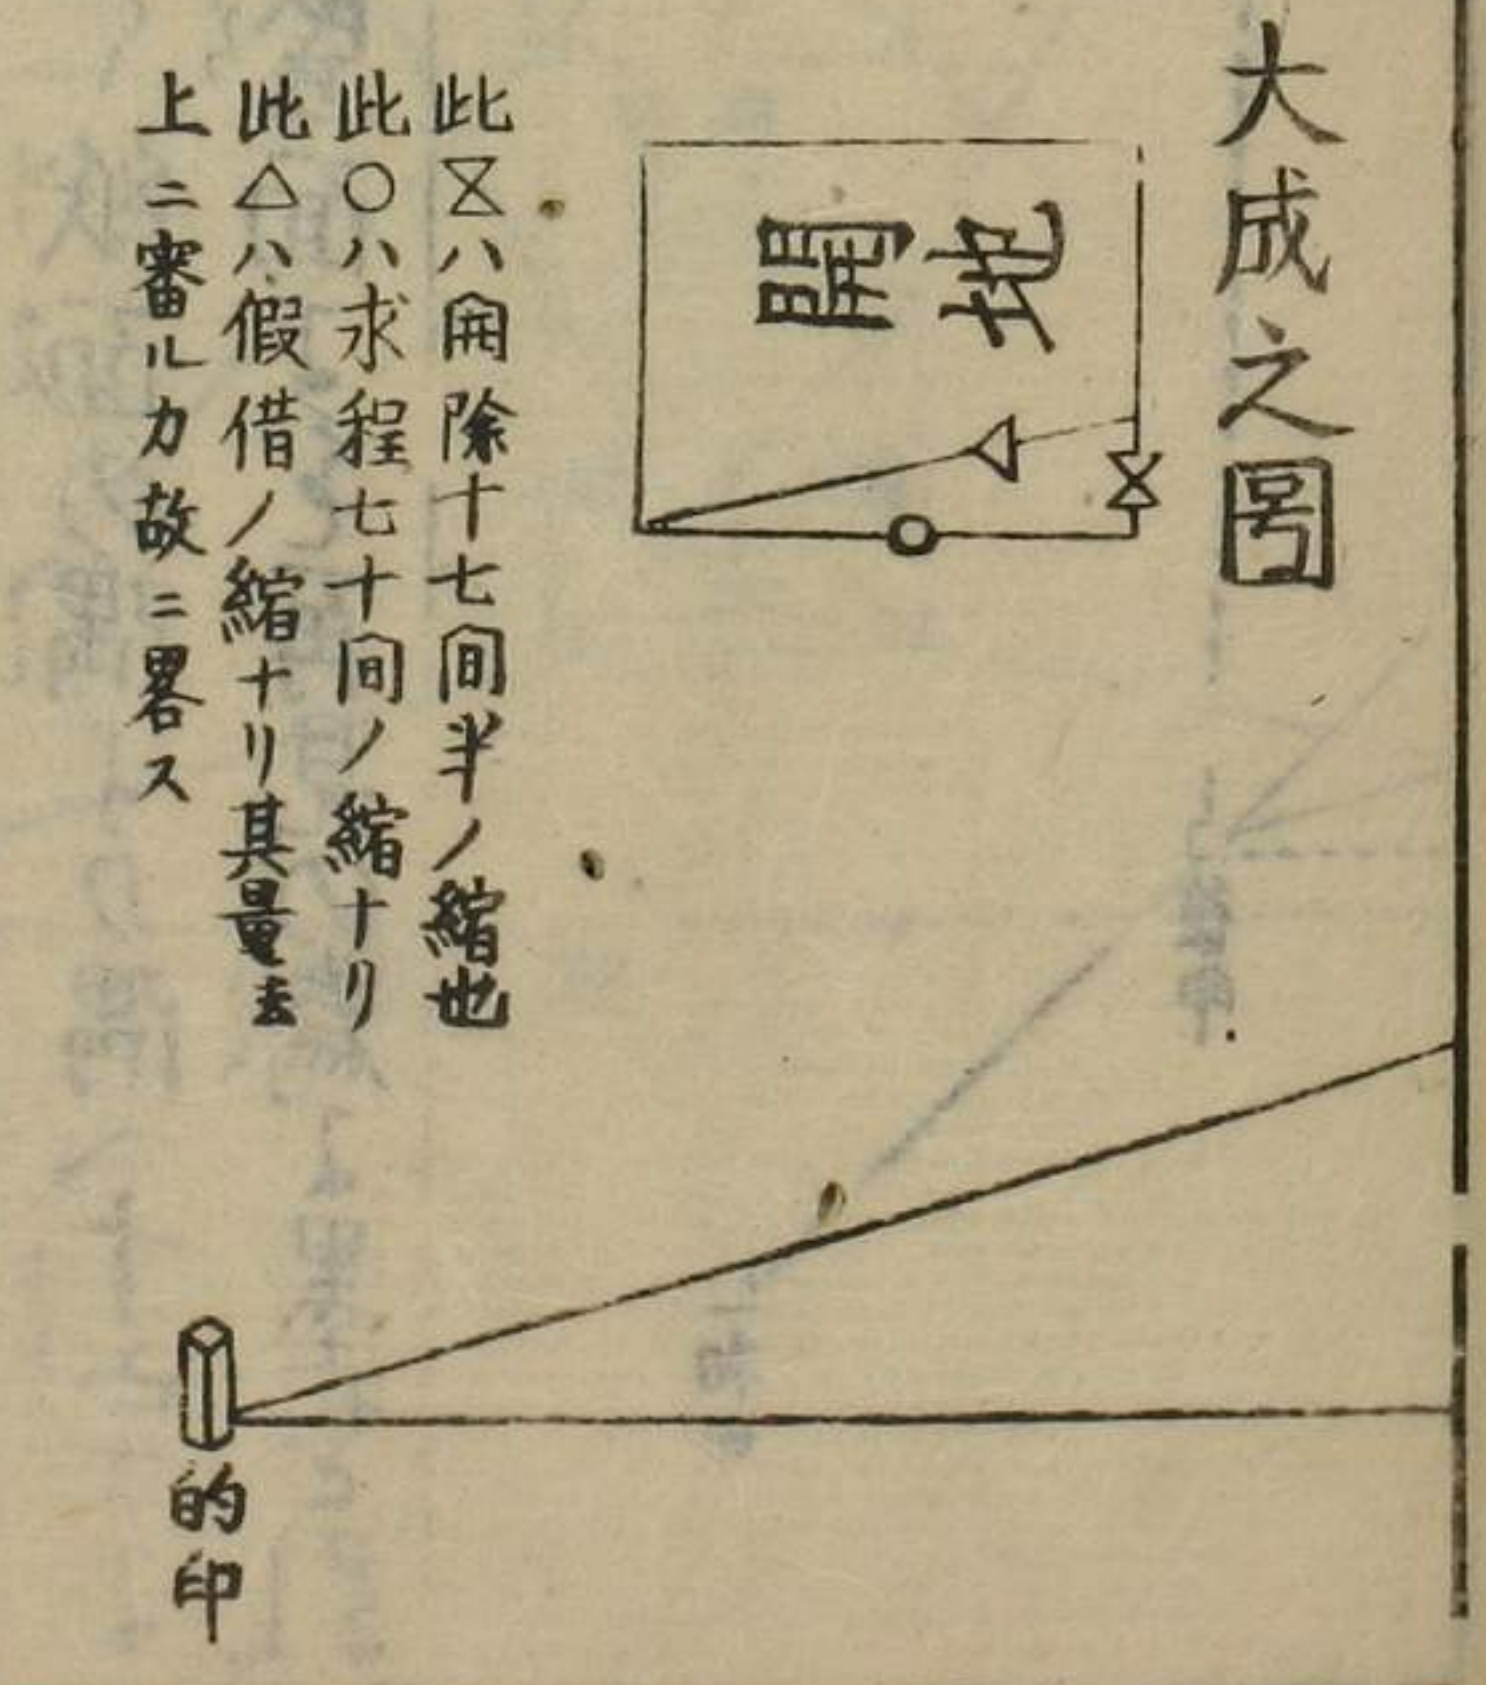 大成之圖
地開
此⧖ハ開除十七間半ノ縮也
此○ハ求程七十間ノ縮ナリ
此△ハ假借ノ縮ナリ其量去
上ニ審ルカ故ニ畧ス
的印